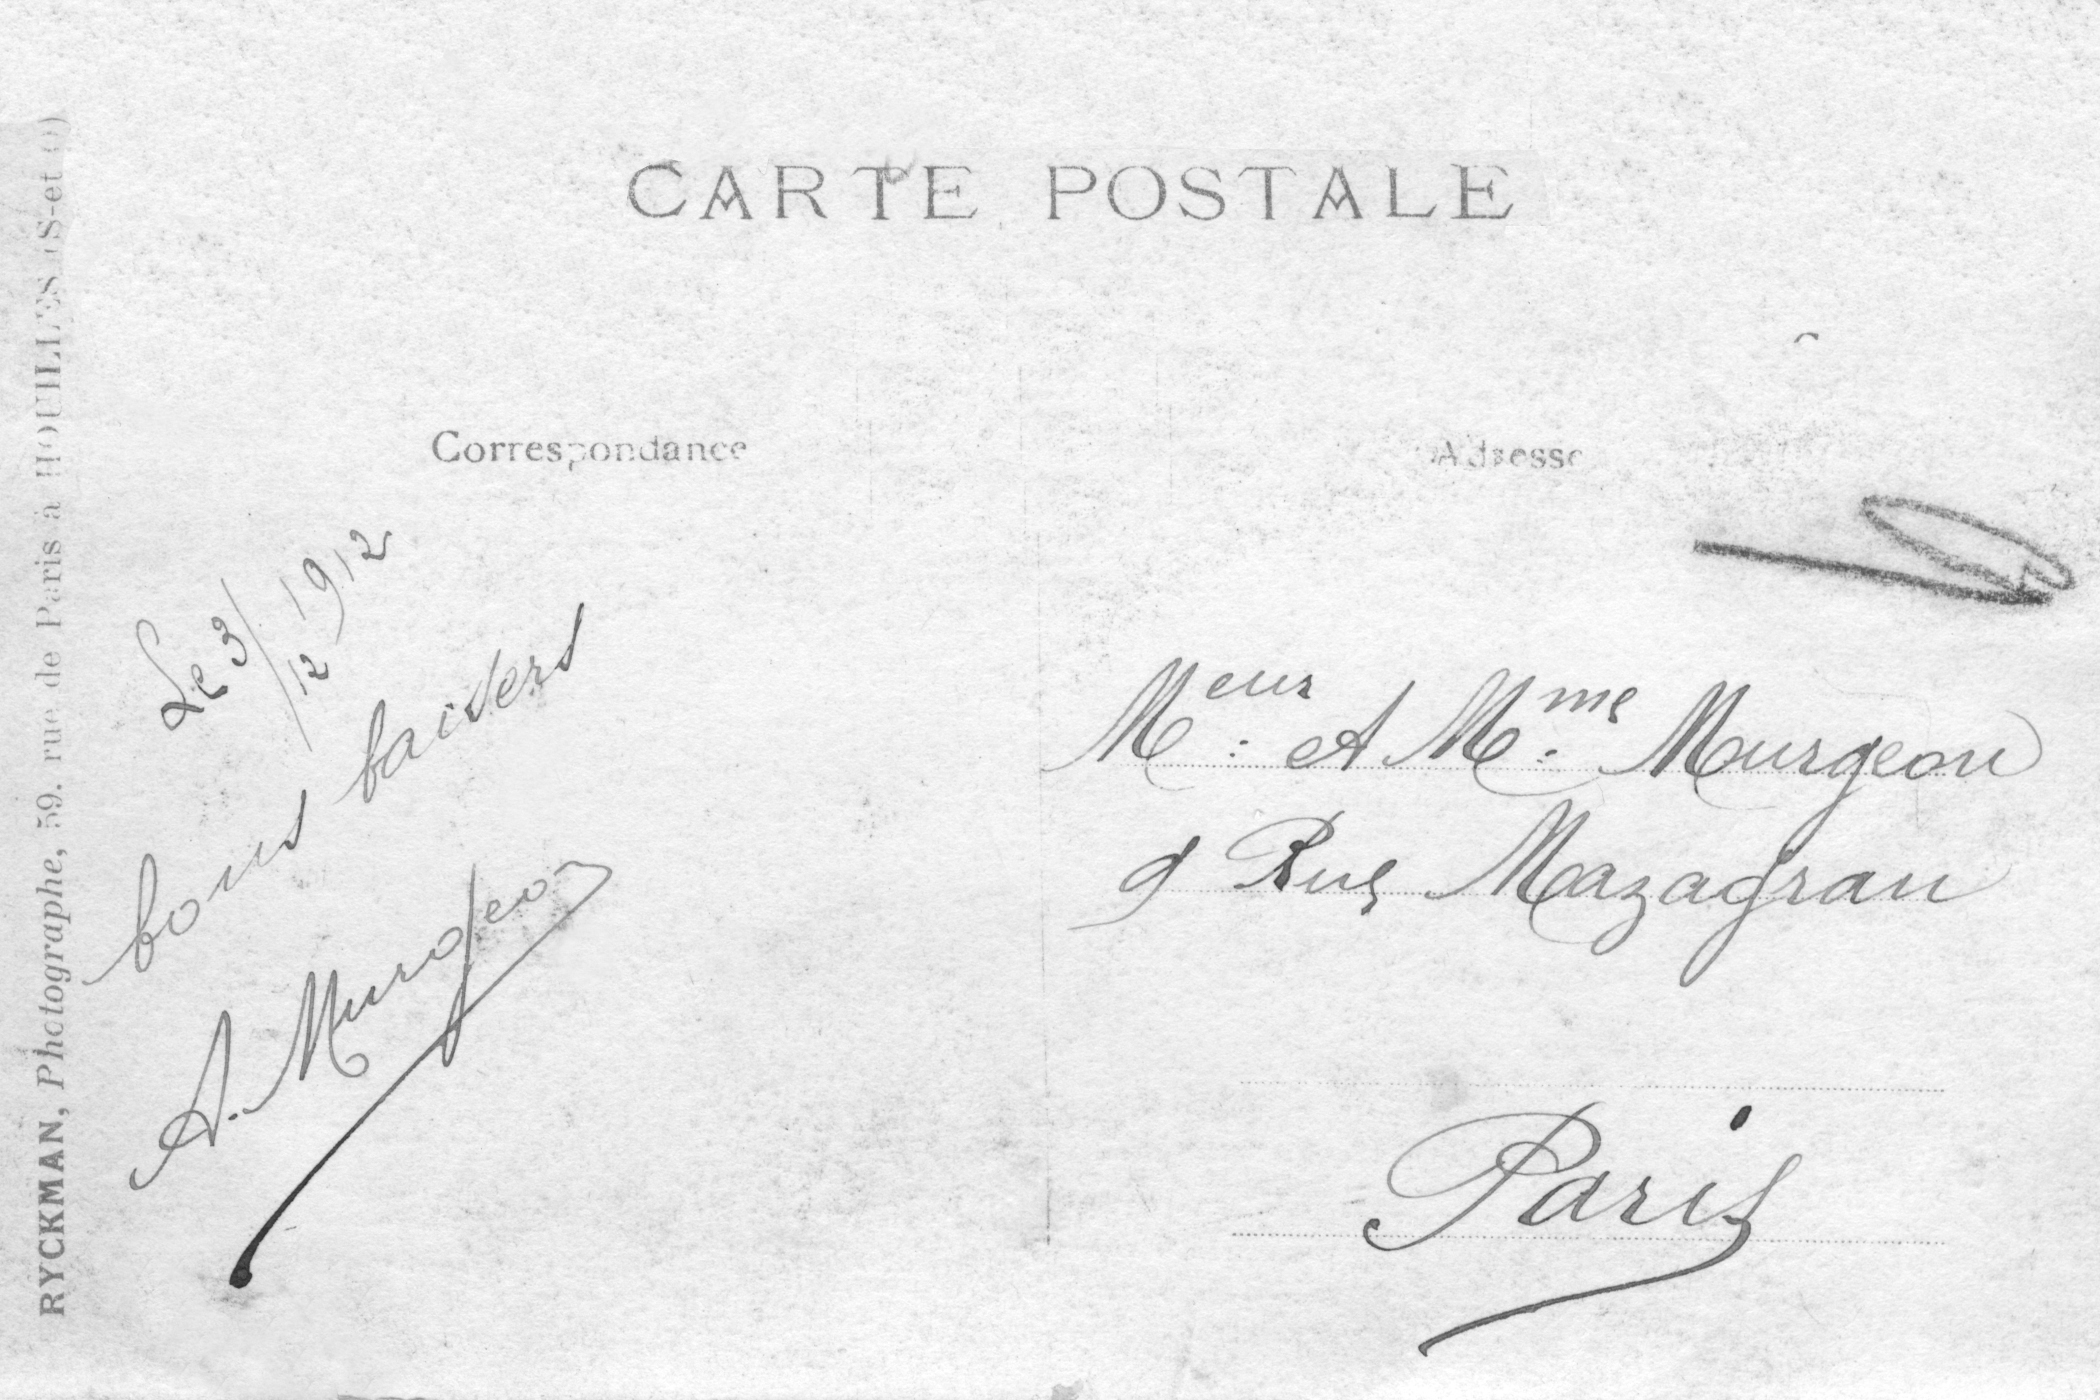 CARTE POSTALE
Correspondance
Adresse
Le 3/12 1912
bons baisers
A. Murgeon
Meur : et Mme. Mourgeon
9 Rue Mazagran
Paris
RYCKMAN, Photographe, 59. rue de Paris à HOUILLES (S-et-O)